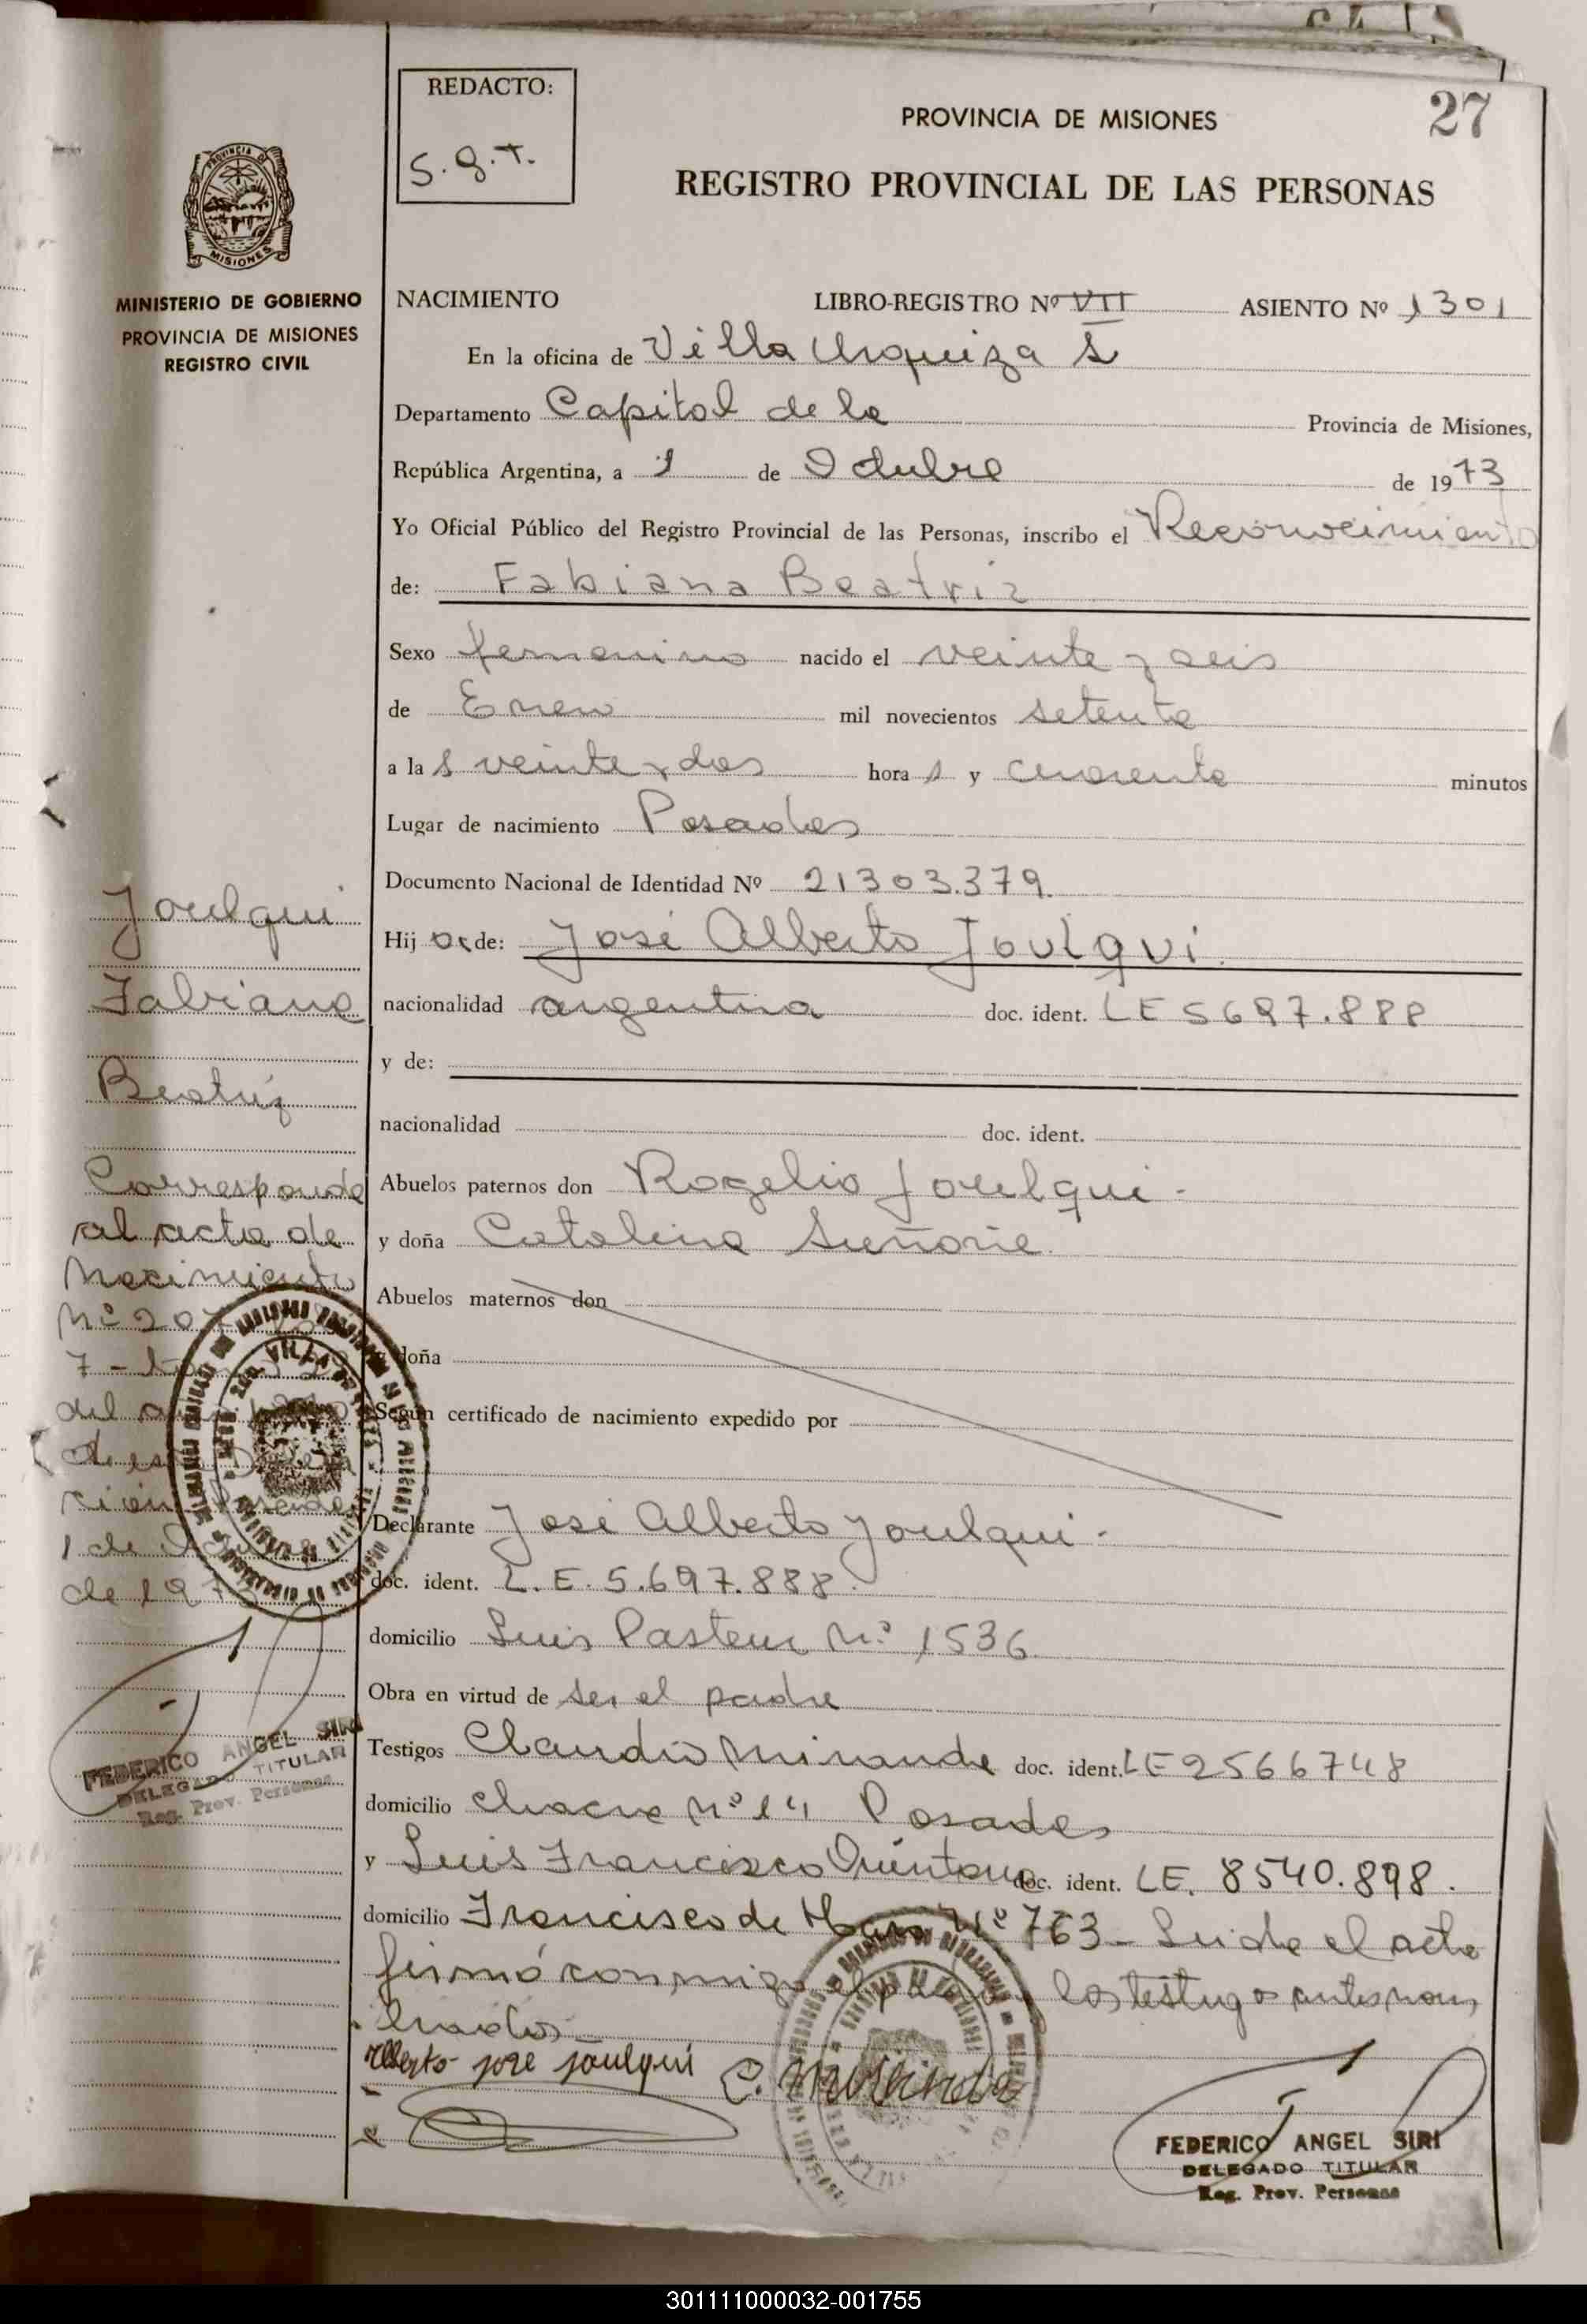 27
REDACTO:
S.G.T.
PROVINCIA DE MISIONES
REGISTRO PROVINCIAL DE LAS PERSONAS
PROVINCIA D
MISIONES
MINISTERIO DE GOBIERNO
PROVINCIA DE MISIONES
REGISTRO CIVIL
NACIMIENTO LIBRO-REGISTRO Nº VII ASIENTO Nº 1301
En la oficina de Villa Urquiza I
Departamento Capital de la Provincia de Misiones,
República Argentina, a 1 de Octubre de 1973
Yo Oficial Público del Registro Provincial de las Personas, inscribo el Reconocimiento
de: Fabiana Beatriz
Sexo femenino nacido el veinte y seis
de Enero mil novecientos setenta
a las veinte y dos horas y cuarenta minutos
Lugar de nacimiento Posadas
Documento Nacional de Identidad Nº 21303.379.
Hija de: José Alberto Joulqui.
nacionalidad argentina doc. ident. LE 5697.888
y de:
nacionalidad doc. ident.
Abuelos paternos don Rogelio Joulqui.-
y doña Catalina
Abuelos maternos don
y doña
Según certificado de nacimiento expedido por
Declarante José Alberto Joulqui.-
doc. ident. L.E. 5.697.888.
domicilio Luis Pasteur Nº 1536
Obra en virtud de ser el padre
Testigos Claudio Miranda doc. ident. LE 2566748
domicilio chacra Nº 14 Posadas
y Luis Francisco Quintana doc. ident. LE. 8540.898.
domicilio Francisco de Haro Nº 763- Leida el acta
firmó conmigo el padre y los testigos antes nom
brados.
Alberto jose joulqui
FEDERICO ANGEL SIRI
DELEGADO TITULAR
Reg. Prov. Personas
Joulqui
Fabiana
Beatriz
Corresponde
al acta de
Nacimiento
Nº 207
7 -
del año
de esta
1 de
de 1973
FEDERICO ANGEL SIRI
DELEGADO TITULAR
Reg. Prov. Personas
301111000032-001755